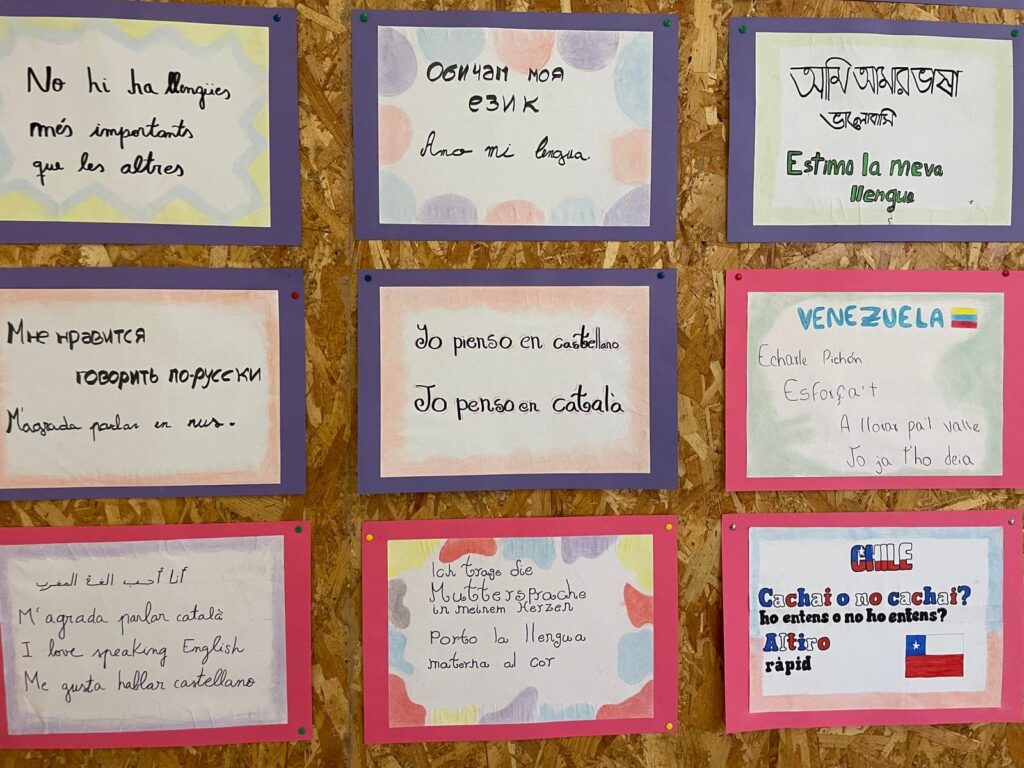 No hi ha llengües
més importants
que les altres
Обичам моя
език
Amo mi lengua.
আমি আমার ভাষা
ভালোবাসি
Estimo la meva
llengua
Мне нравится
говорить по-русски
M'agrada parlar en rus.
Yo pienso en castellano
Jo penso en català
VENEZUELA
Echarle Pichón
Esforça't
A llorar pa'l valle
Jo ja t'ho deia
أنا أحب الغة المغرب
M'agrada parlar català
I love speaking English
Me gusta hablar castellano
Ich trage die
Muttersprache
in meinem Herzen
Porto la llengua
materna al cor
CHILE
Cachai o no cachai?
ho entens o no ho entens?
Altiro
ràpid